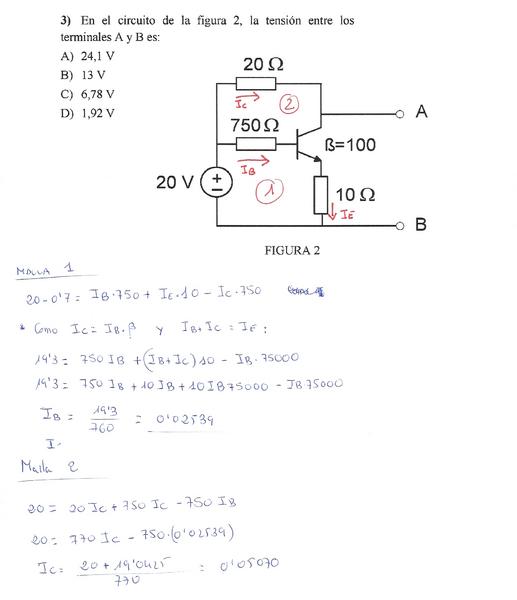 3) En el circuito de la figura 2, la tensión entre los
terminales A y B es:
A) 24,1 V
B) 13 V
C) 6,78 V
D) 1,92 V
20 Ω
Ic
2
A
750 Ω
IB
ß=100
1
20 V
10 Ω
IE
B
FIGURA 2
MALLA 1
20-0'7 = IB·750 + IE·10 - Ic·750
* Como Ic = IB·β y IB+Ic = IE :
19'3 = 750 IB + (IB+Ic)10 - IB·75000
19'3 = 750 IB + 10 IB + 10 IB75000 - IB75000
IB = 19'3 / 760 = 0'02539
I-
Malla 2
20 = 20 Ic + 750 Ic - 750 IB
20 = 770 Ic - 750·(0'02539)
Ic = 20 + 19'0425 / 770 = 0'05070